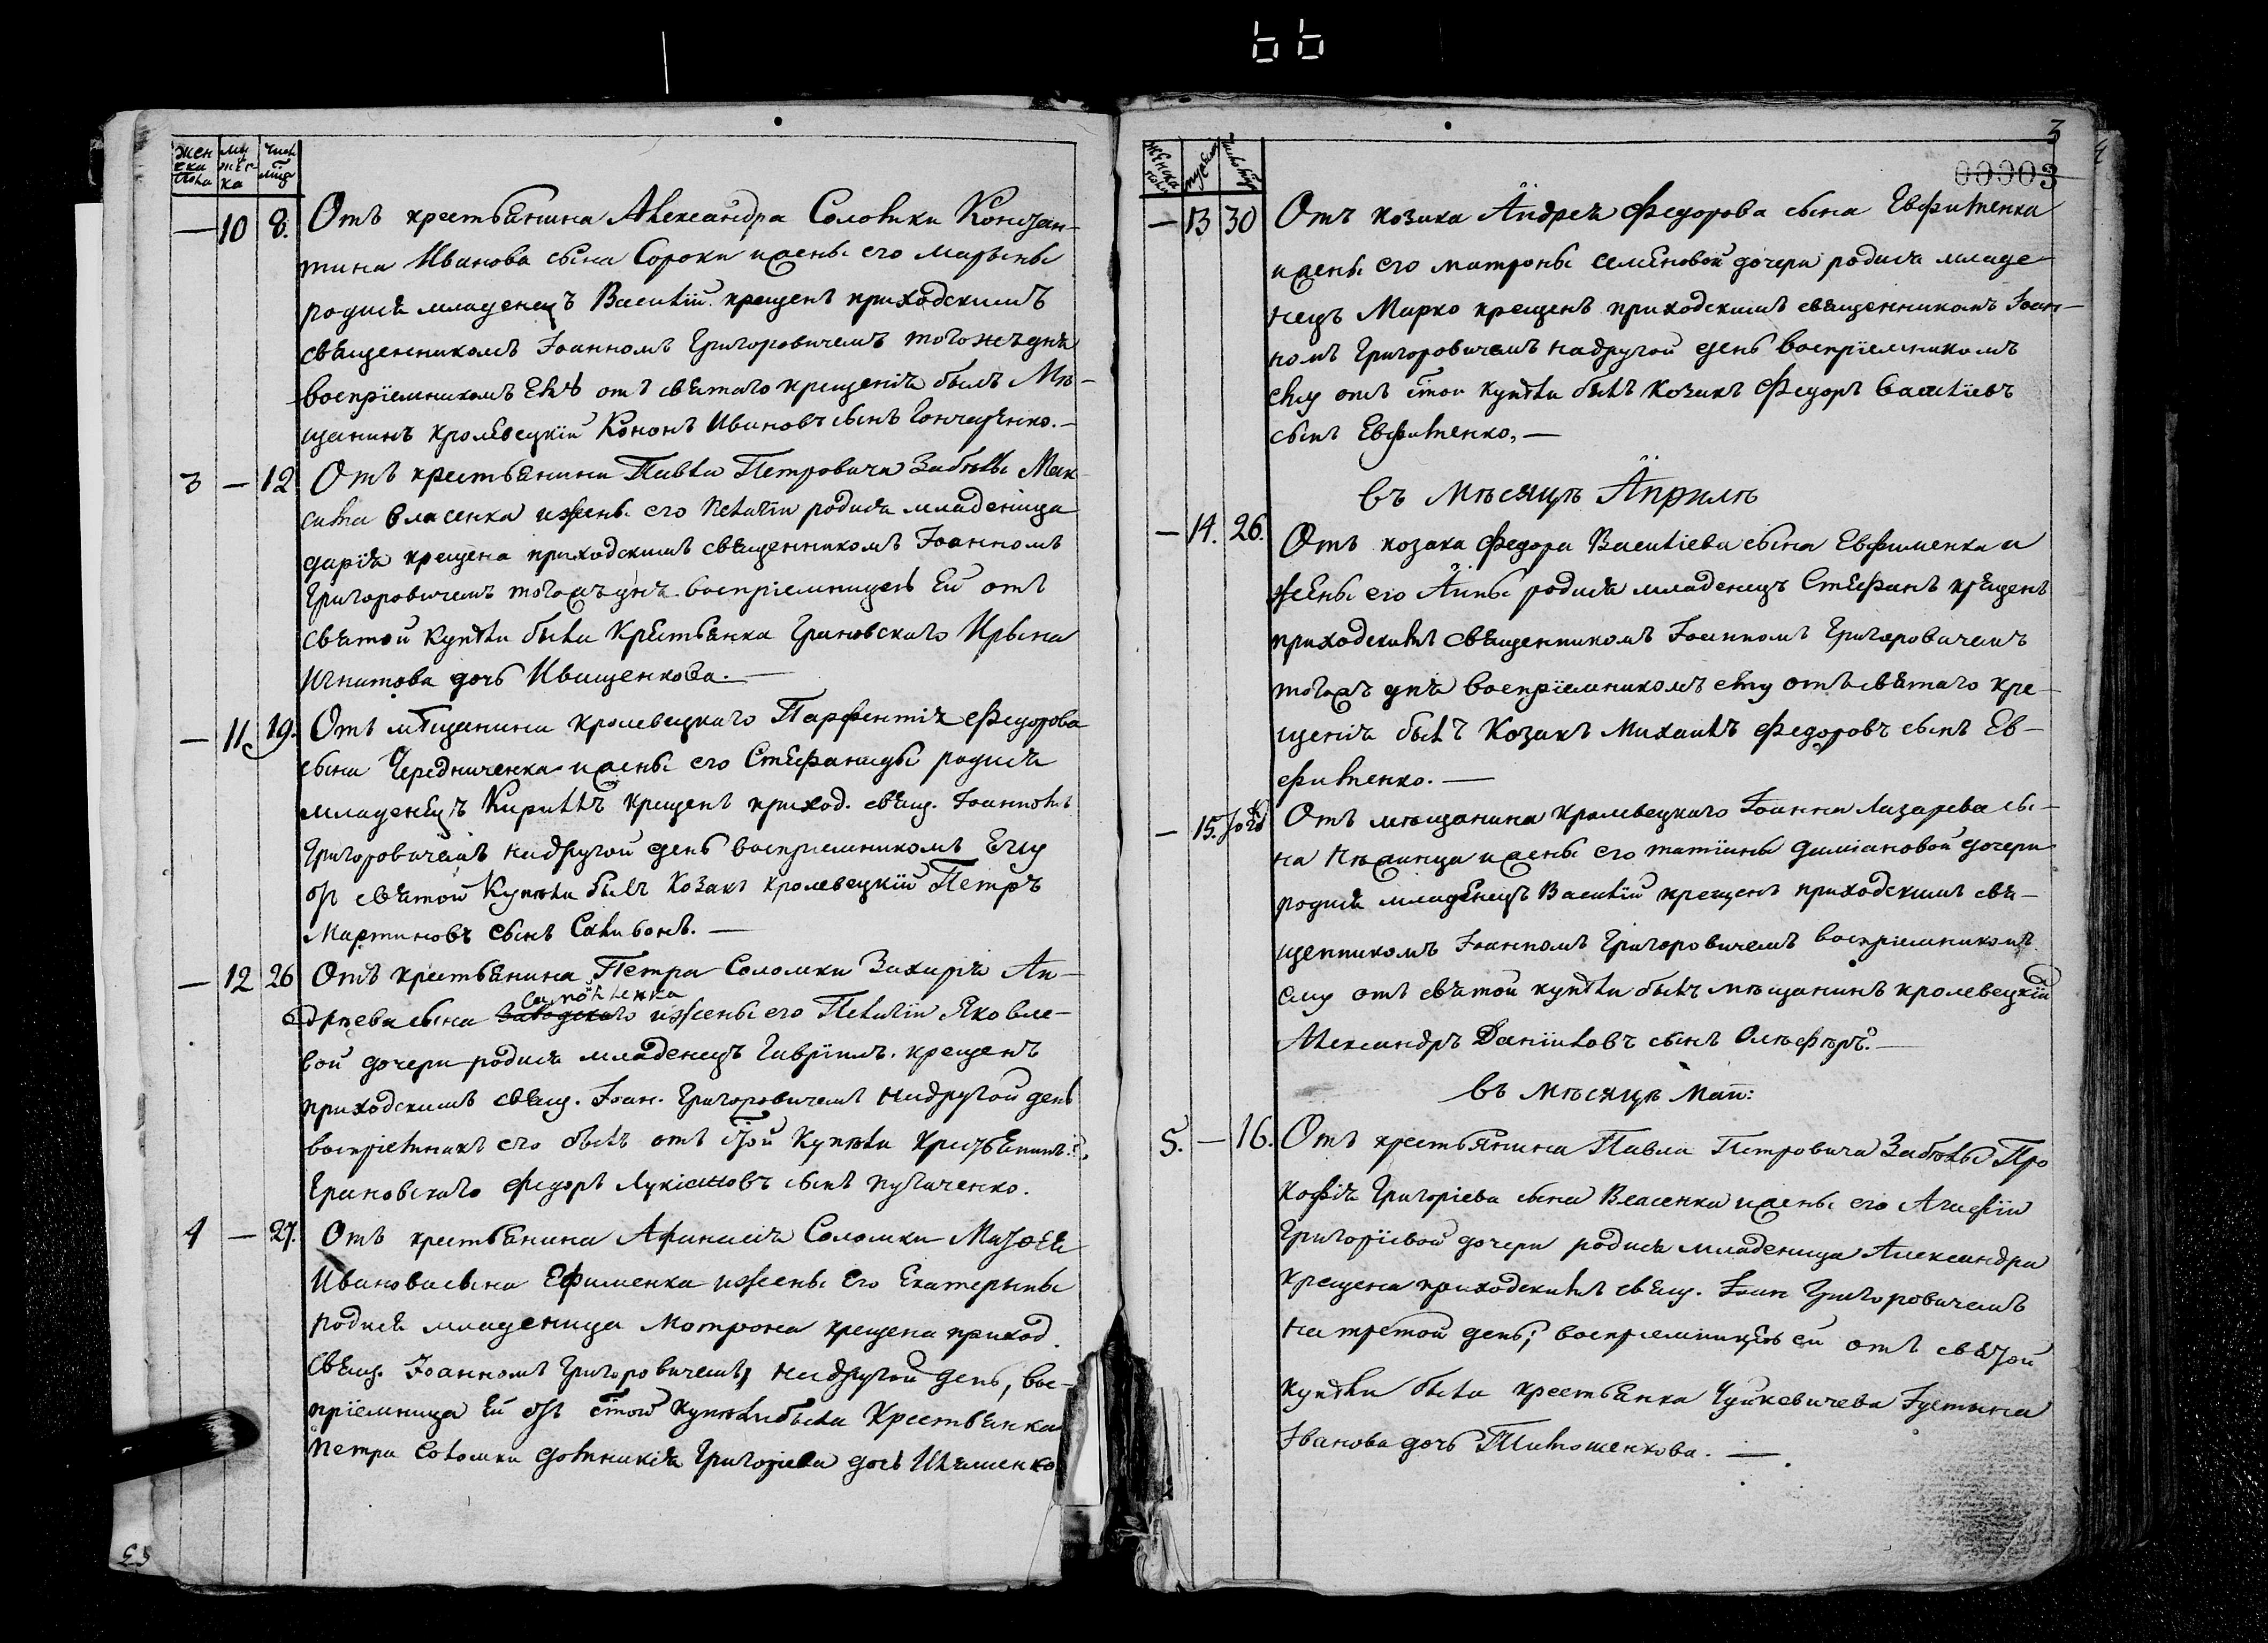 жен ска пола
му жес ка
числ мца
— 10 8. Отъ крестьянина Александра Соломки Констан-
тина Иванова сына Сороки и жены его Марыны
родися младенецъ Василій. крещенъ приходскимъ
священникомъ Іоанномъ Григоровичемъ того жъ дня
воспріемникомъ Ему отъ святаго крещенія былъ Мѣ-
щанинъ кролевецкій Кононъ Ивановъ сынъ Гончаренко.—
3 — 12. Отъ крестьянина Павла Петровича Забѣлы Мак-
сима Власенка и жены его Пелагіи родися младеница
дарія крещена приходскимъ священникомъ Іоанномъ
Григоровичемъ тогожъ дня воспріемницею Ей отъ
святой купѣли была Крестьянка Грановскаго Ирына
Игнатова дочь Иващенкова.—
— 11. 19. Отъ мѣщанина кролевецкаго Парфентія Федорова
сына Чередниченка и жены его Стефаниды родися
младенецъ Кириллъ крещенъ приход. свящ. Іоанномъ
Григоровичемъ надругой день воспріемникомъ Ему
отъ святой Купѣли былъ Козакъ кролевецкій Петръ
Мартиновъ сынъ Салибонъ.—
— 12 26 Отъ крестьянина Петра Соломки Захарія Ан-
дрѣева сына Самойленка и жены его Пелагіи Яковле-
вой дочери родися младенецъ Гавріилъ. крещенъ
приходскимъ свящ. Іоан. Григоровичемъ надругой день
воспріемникъ его былъ отъ стой Купѣли Крестьянинъ
Грановскаго Федоръ Лукіановъ сынъ Пугаченко.
4 — 27. Отъ крестьянина Афанасія Соломки Матфея
Иванова сына Ефименка и жены Его Екатерыны
родися младеница Мотрона крещена приход.
свящ. Іоанномъ Григоровичемъ, надругой день, вос-
пріемница Ей отъ стой купѣли была Крестьянка
Петра Соломки домникія Григоріева дочь Иляшенко
3
00003
женска пола
мужеска
число мца
— 13 30 Отъ козака Андрея Федорова сына Евфименка
и жены его матроны семеновой дочери родися младе-
нецъ Марко крещенъ приходскимъ священникомъ Іоан-
номъ Григоровичемъ надругой день воспріемникомъ
ему отъ стой купѣли былъ козакъ Федоръ Василіевъ
сынъ Евфименко.—
въ Мѣсяцѣ Априлѣ
— 14. 26. Отъ козака Федора Василіева сына Евфименка и
жены его Анны родися младенецъ Стефанъ крещенъ
приходскимъ священникомъ Іоанномъ Григоровичемъ
тогожъ дня воспріемникомъ ему отъ святаго кре-
щенія былъ Козакъ Михаилъ Федоровъ сынъ Ев-
фименко.—
— 15. Отъ мѣщанина кролевецкаго Іоанна Лазарева сы-
на Нѣжинца и жены его татіаны даміановой дочери
родися младенецъ Василій крещенъ приходскимъ свя-
щенникомъ Іоанномъ Григоровичемъ воспріемникомъ
ему отъ святой купѣли былъ мѣщанинъ кролевецкій
Александръ Даніиловъ сынъ Олѣферъ.—
въ Мѣсяцѣ Маіи:
5. — 16. Отъ крестьянина Павла Петровича Забѣлы Про
кофія Григоріева сына Власенка и жены его Агафіи
Григоріевой дочери родися младеница Александра
крещена приходскимъ свящ. Іоан Григоровичемъ
на третой день; воспріемницею ей отъ святой
купѣли была крестьянка Чуйкевичева Іустина
Іванова дочь Тимошенкова.—